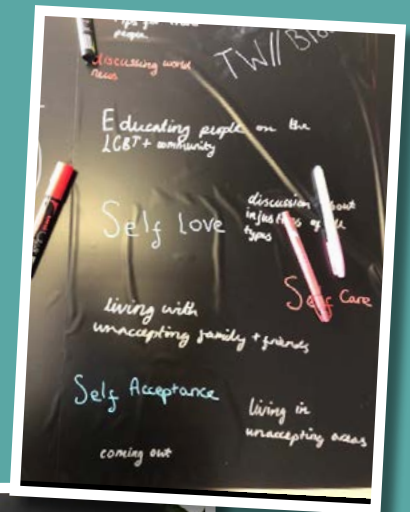 Tips for
people.
discussing world
news
TW//
Educating people on the
LGBT+ community
Self Love
discussion about
injustices of all
types
Self Care
living with
unaccepting family + friends
Self Acceptance
living in
unaccepting areas
coming out